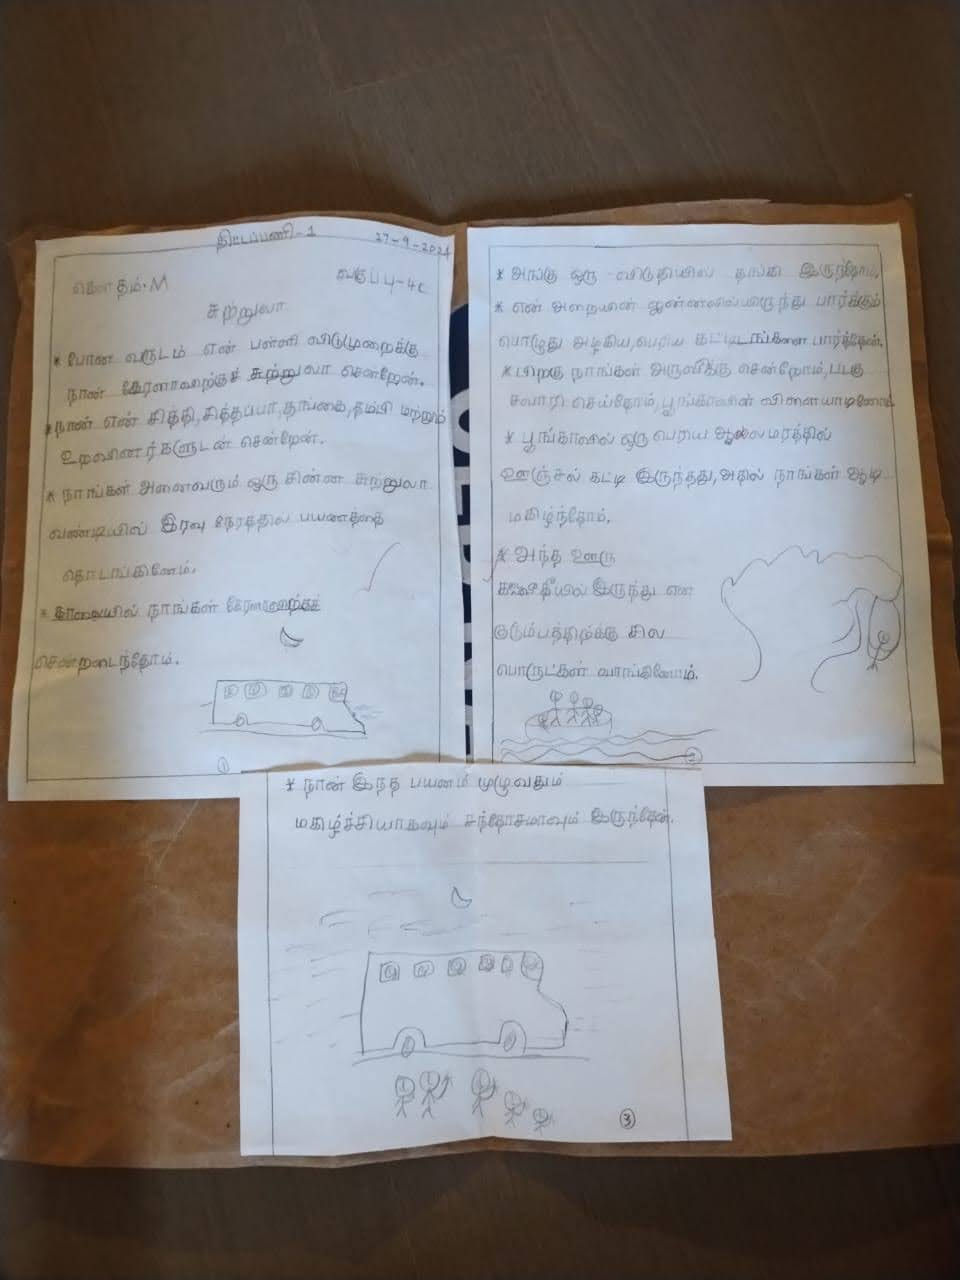 திட்டப்பணி-1
27-9-2021
கௌதம்.M
வகுப்பு-4c
சுற்றுலா
* போன வருடம் என் பள்ளி விடுமுறைக்கு
நான் கேரளாவுக்குச் சுற்றுலா சென்றேன்.
* நான் என் சித்தி, சித்தப்பா, தங்கை, தம்பி மற்றும்
உறவினர்களுடன் சென்றேன்.
* நாங்கள் அனைவரும் ஒரு சின்ன சுற்றுலா
வண்டியில் இரவு நேரத்தில் பயணத்தை
தொடங்கினோம்.
* காலையில் நாங்கள்
சென்றடைந்தோம்.
1
* அங்கு ஒரு விடுதியில் தங்கி இருந்தோம்.
* என் அறையின் ஜன்னலில்லிருந்து பார்க்கும்
பொழுது அழகிய, பெரிய கட்டிடங்களை பார்த்தேன்.
* பிறகு நாங்கள் அருவிக்கு சென்றோம், படகு
சவாரி செய்தோம், பூங்காவின் விளையாடினோம்.
* பூங்காவில் ஒரு பெரிய ஆல மரத்தில்
ஊஞ்சல் கட்டி இருந்தது, அதில் நாங்கள் ஆடி
மகிழ்ந்தோம்.
* அந்த ஊரு
இருந்து என
குடும்பத்திற்க்கு சில
பொருட்கள் வாங்கினோம்.
2
* நான் இந்த பயணம் முழுவதும்
மகிழ்ச்சியாகவும் சந்தோசமாவும் இருந்தேன்.
3